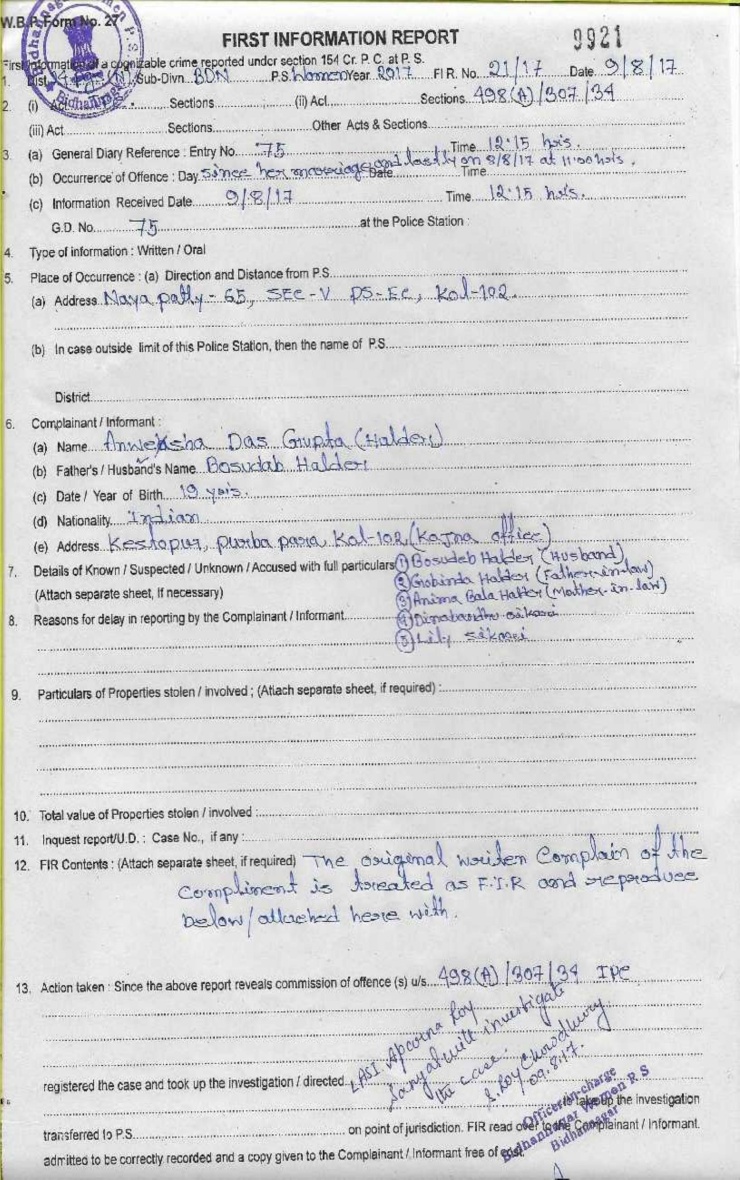 W.B.P. Form No. 27
FIRST INFORMATION REPORT
9921
First Information of a cognizable crime reported under section 154 Cr. P. C. at P. S.
1. Dist. Sub-Divn. BDN P.S. Women Year 2017 FIR. No. 21/17 Date 9/8/17
2. (i) Act Sections (ii) Act Sections 498(A)/307/34
(iii) Act Sections Other Acts & Sections
3. (a) General Diary Reference : Entry No. 75 Time 12:15 hrs.
(b) Occurrence of Offence : Day since her marriage and lastly on 8/8/17 at 11:00 hrs. Date Time
(c) Information Received Date 9/8/17 Time 12:15 hrs.
G.D. No. 75 at the Police Station :
4. Type of information : Written / Oral
5. Place of Occurrence : (a) Direction and Distance from P.S.
(a) Address Naya patty - 65, SEC-V PS-EC, Kol-102.
(b) In case outside limit of this Police Station, then the name of P.S.
District
6. Complainant / Informant :
(a) Name Anweksha Das Gupta (Halder)
(b) Father's / Husband's Name Bosudab Halder
(c) Date / Year of Birth 19 yrs.
(d) Nationality Indian
(e) Address Kestopur, purba para, Kol-102 (office)
7. Details of Known / Suspected / Unknown / Accused with full particulars ① Bosudeb Halder (Husband)
② Gobinda Halder (Father-in-law)
(Attach separate sheet, If necessary) ③ Anima Bala Halder (Mother-in-law)
8. Reasons for delay in reporting by the Complainant / Informant ④ Dinabandhu sikari
⑤ Lily sikari
9. Particulars of Properties stolen / involved ; (Attach separate sheet, if required) :
10. Total value of Properties stolen / involved :
11. Inquest report/U.D. : Case No., if any :
12. FIR Contents : (Attach separate sheet, if required) The original writen Complain of the
Compliment is treated as F.I.R and reproduce
below/attached here with.
13. Action taken : Since the above report reveals commission of offence (s) u/s. 498(A)/307/34 IPC
LASI Aparna Roy
Sanyal will investigate
the case.
S. Roy Chowdhury
09.8.17.
registered the case and took up the investigation / directed
Officer-in-charge
Bidhannagar Women P.S
Bidhannagar
to take up the investigation
transferred to P.S. on point of jurisdiction. FIR read over to the Complainant / Informant.
admitted to be correctly recorded and a copy given to the Complainant / Informant free of cost.